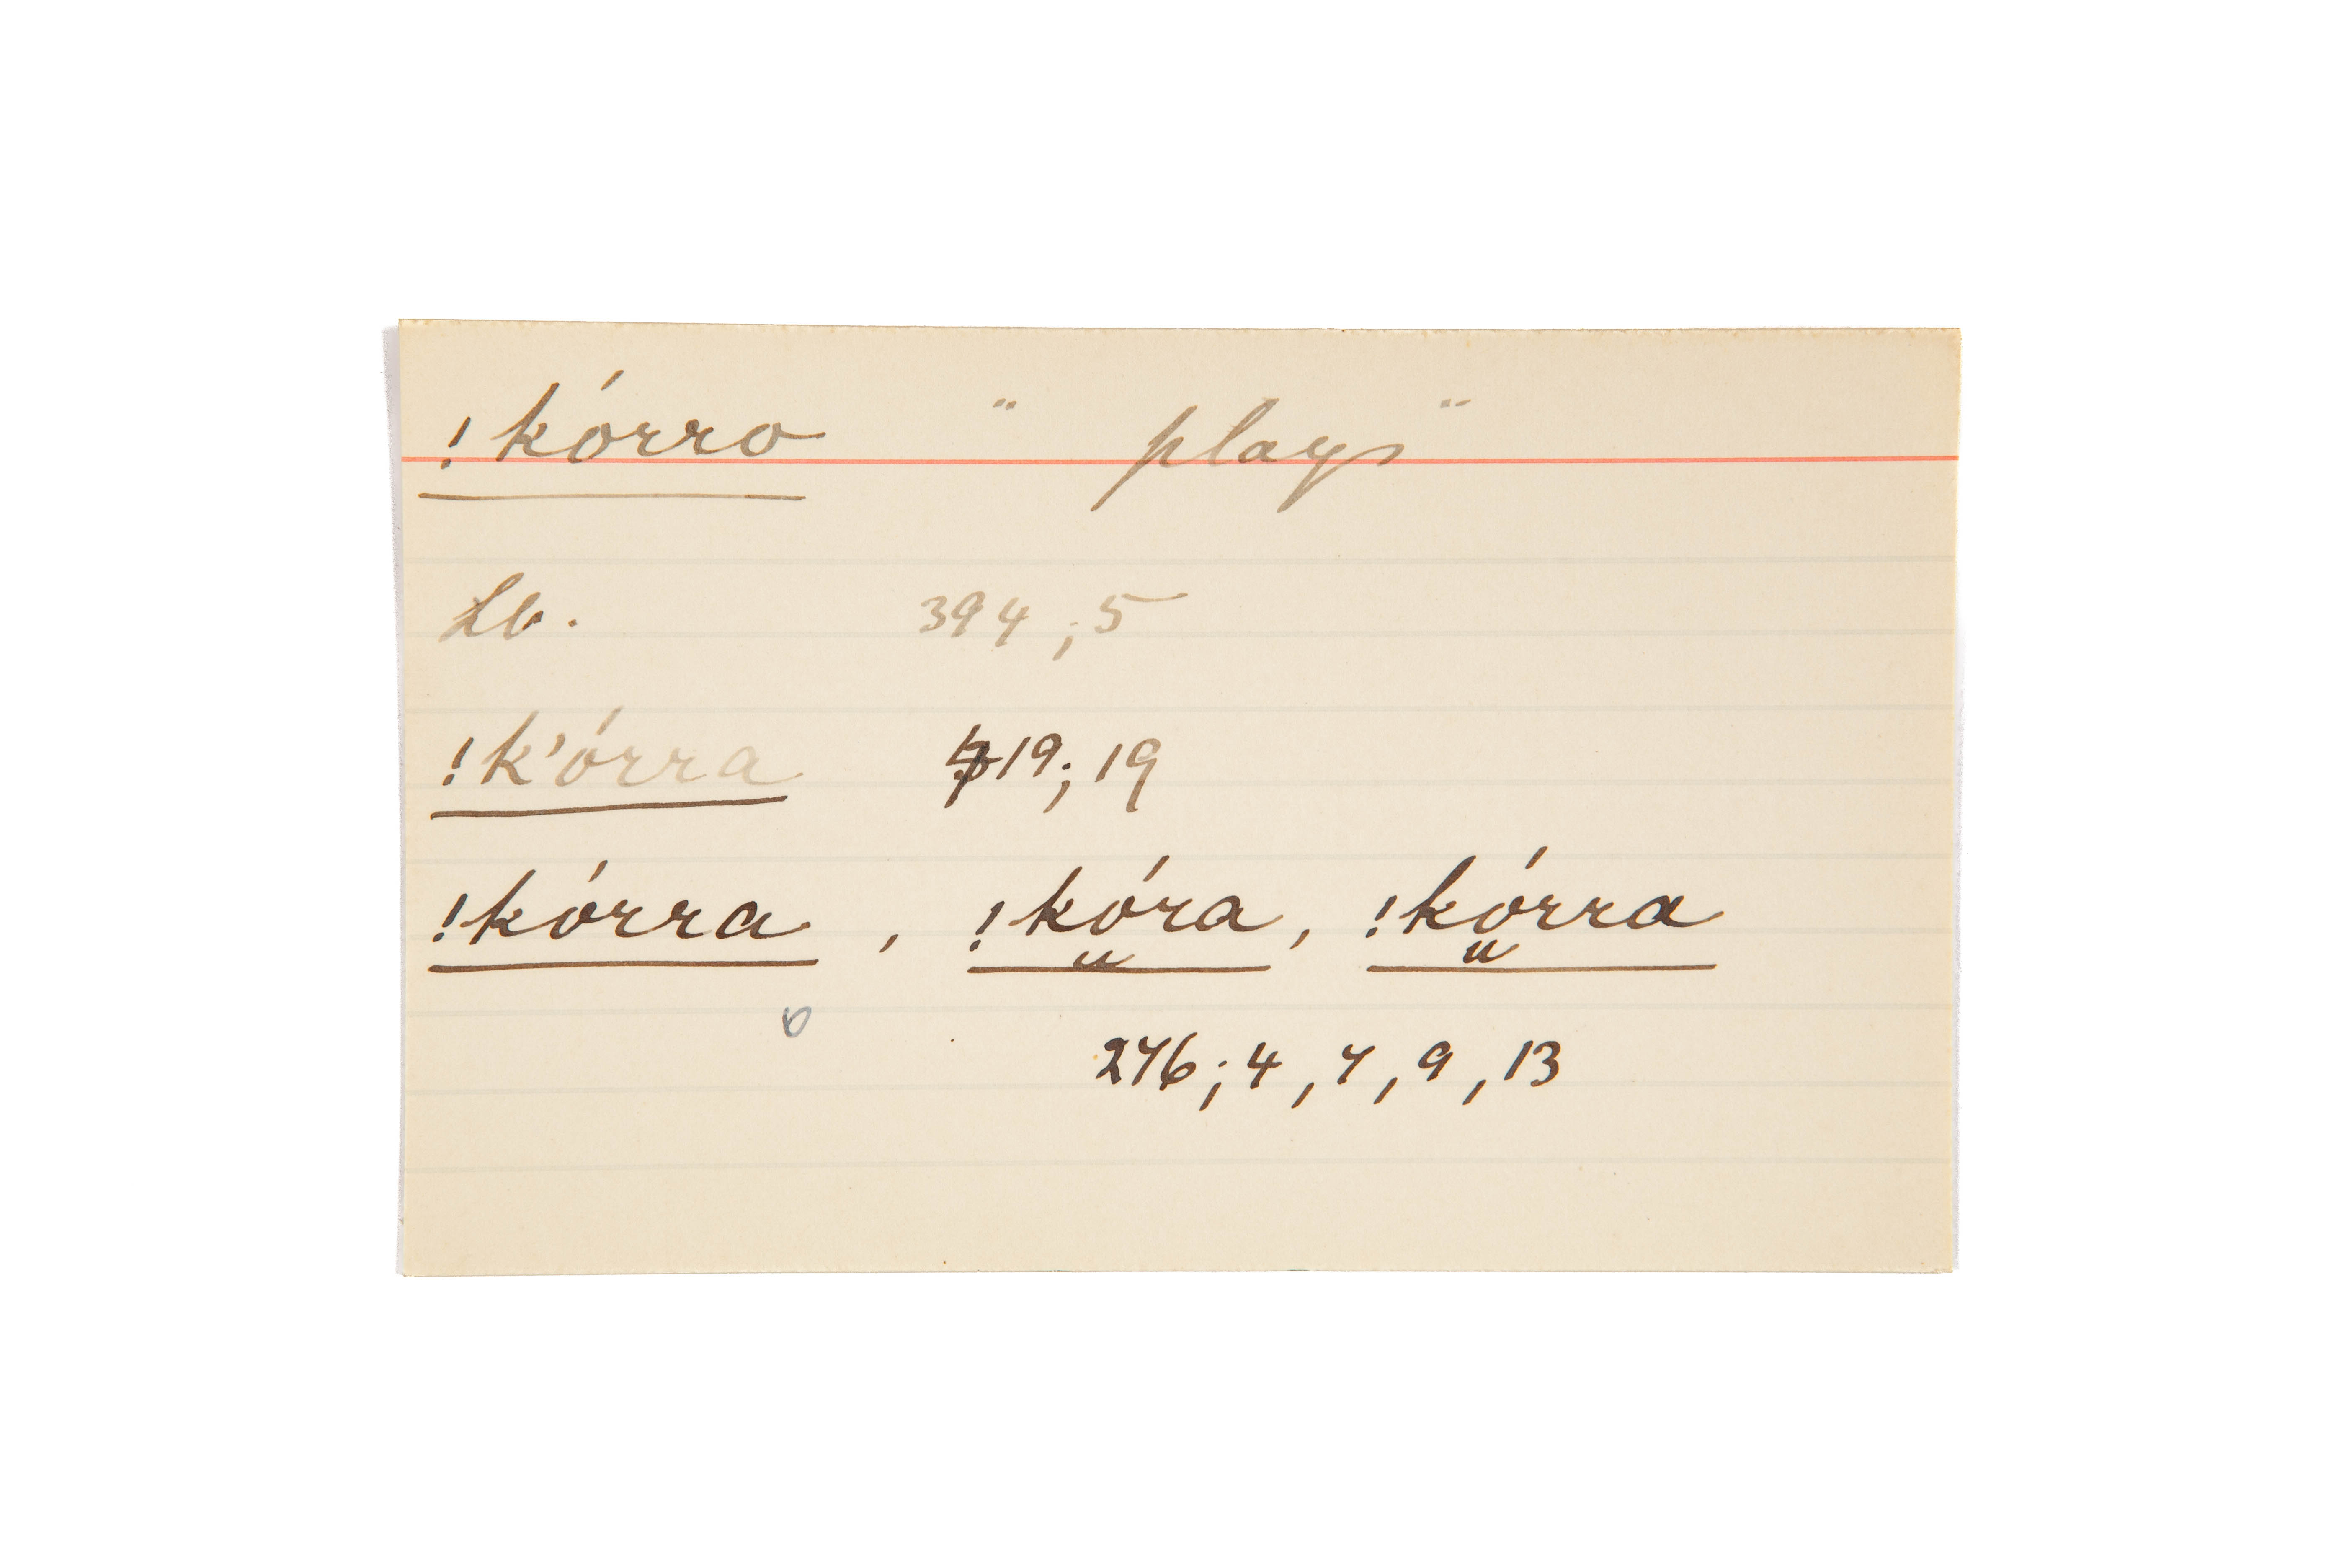 !kórro " plays "
Lb. 394 ; 5
!k'órra 19; 19
!kórra , !kóra, !kórra
u u
276; 4, 7, 9, 13